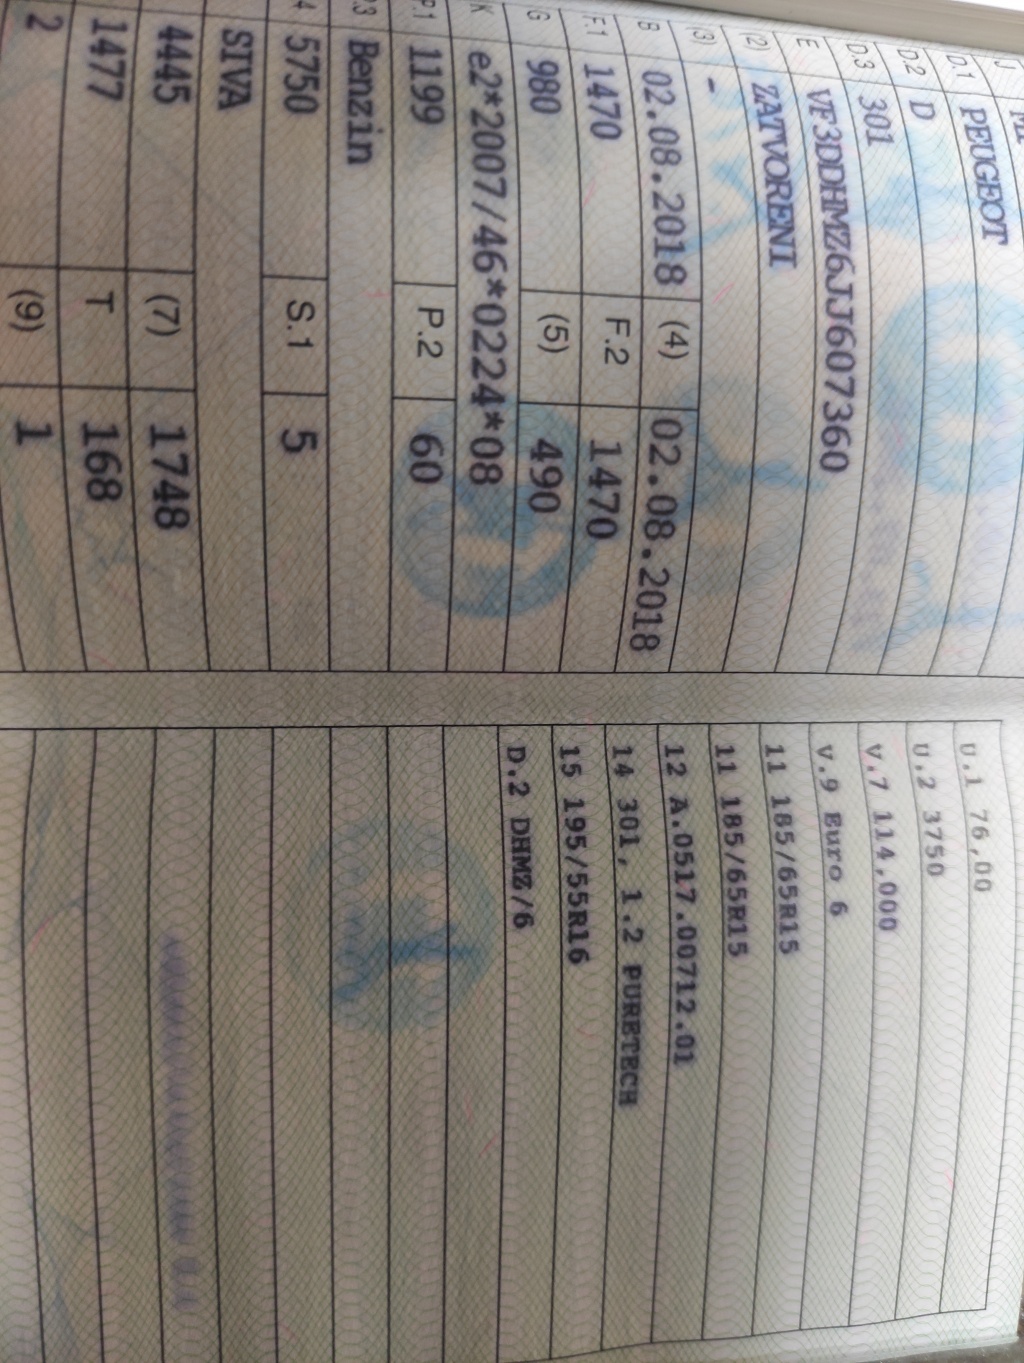 J M1
D.1 PEUGEOT
D.2 D
D.3 301
E VF3DDHMZ6JJ607360
(2) ZATVORENI
(3) -
B 02.08.2018 (4) 02.08.2018
F.1 1470 F.2 1470
G 980 (5) 490
K e2*2007/46*0224*08
P.1 1199 P.2 60
P.3 Benzin
4 5750 S.1 5
SIVA
4445 (7) 1748
1477 T 168
2 (9) 1
U.1 76,00
U.2 3750
V.7 114,000
V.9 Euro 6
11 185/65R15
11 185/65R15
12 A.0517.00712.01
14 301, 1.2 PURETECH
15 195/55R16
D.2 DHMZ/6